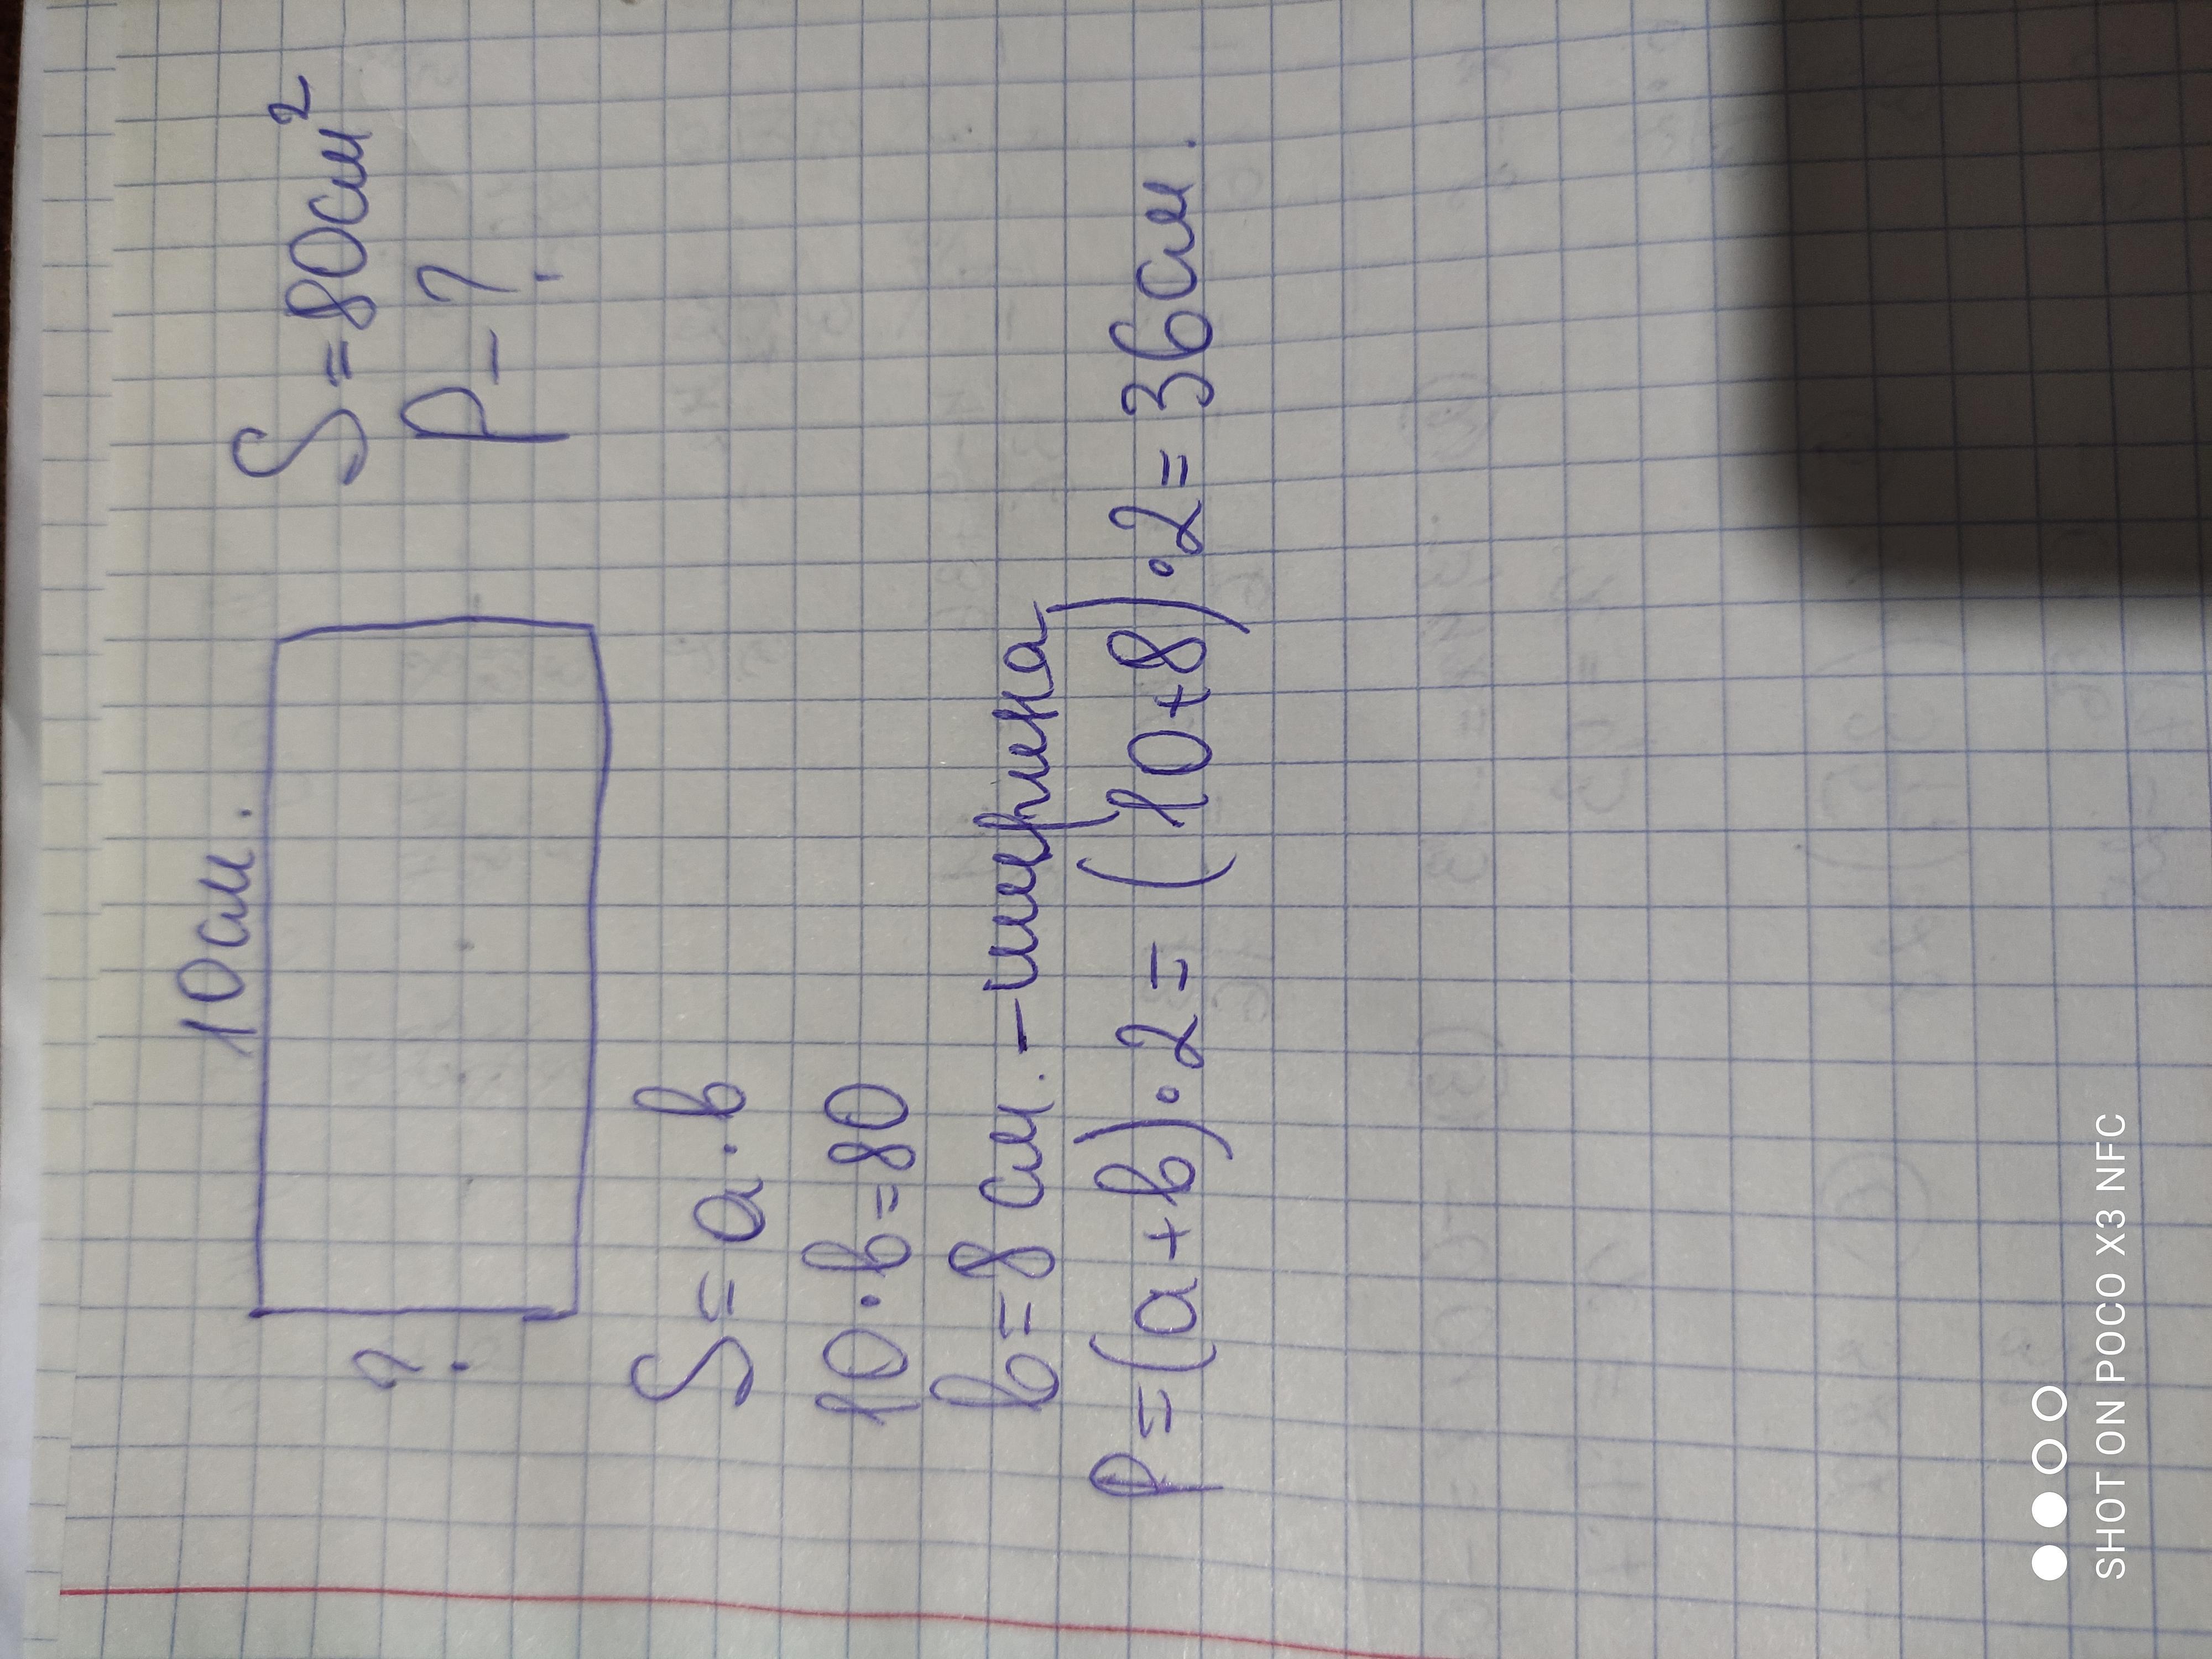 10см.
S=80см²
?
P-?
S=a·b
10·b=80
b=8 см. - ширина
P=(a+b)·2=(10+8)·2=36см.
SHOT ON POCO X3 NFC